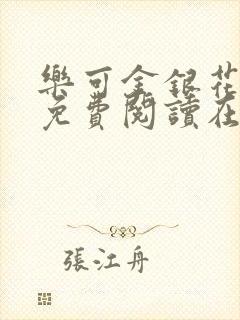 樂可金銀花
免費閱讀在
張江舟